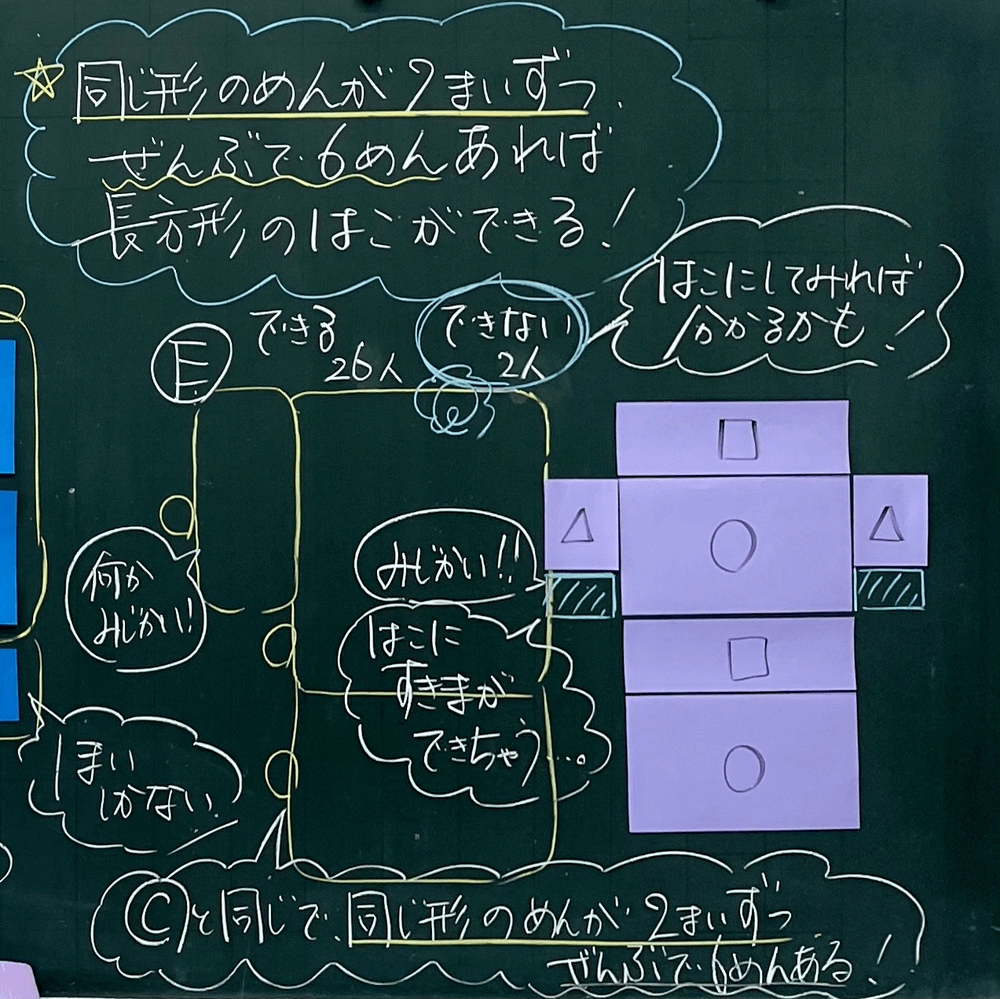 ☆同じ形のめんが2まいずつ、
ぜんぶで6めんあれば
長方形のはこができる!
はこにしてみれば
分かるかも!
E
できる
26人
できない
2人
何か
みじかい!
みじかい!!
はこに
すきまが
できちゃう…。
□
△
○
△
□
○
1まい
しかない
Ⓒと同じで、同じ形のめんが2まいずつ
ぜんぶで6めんある!